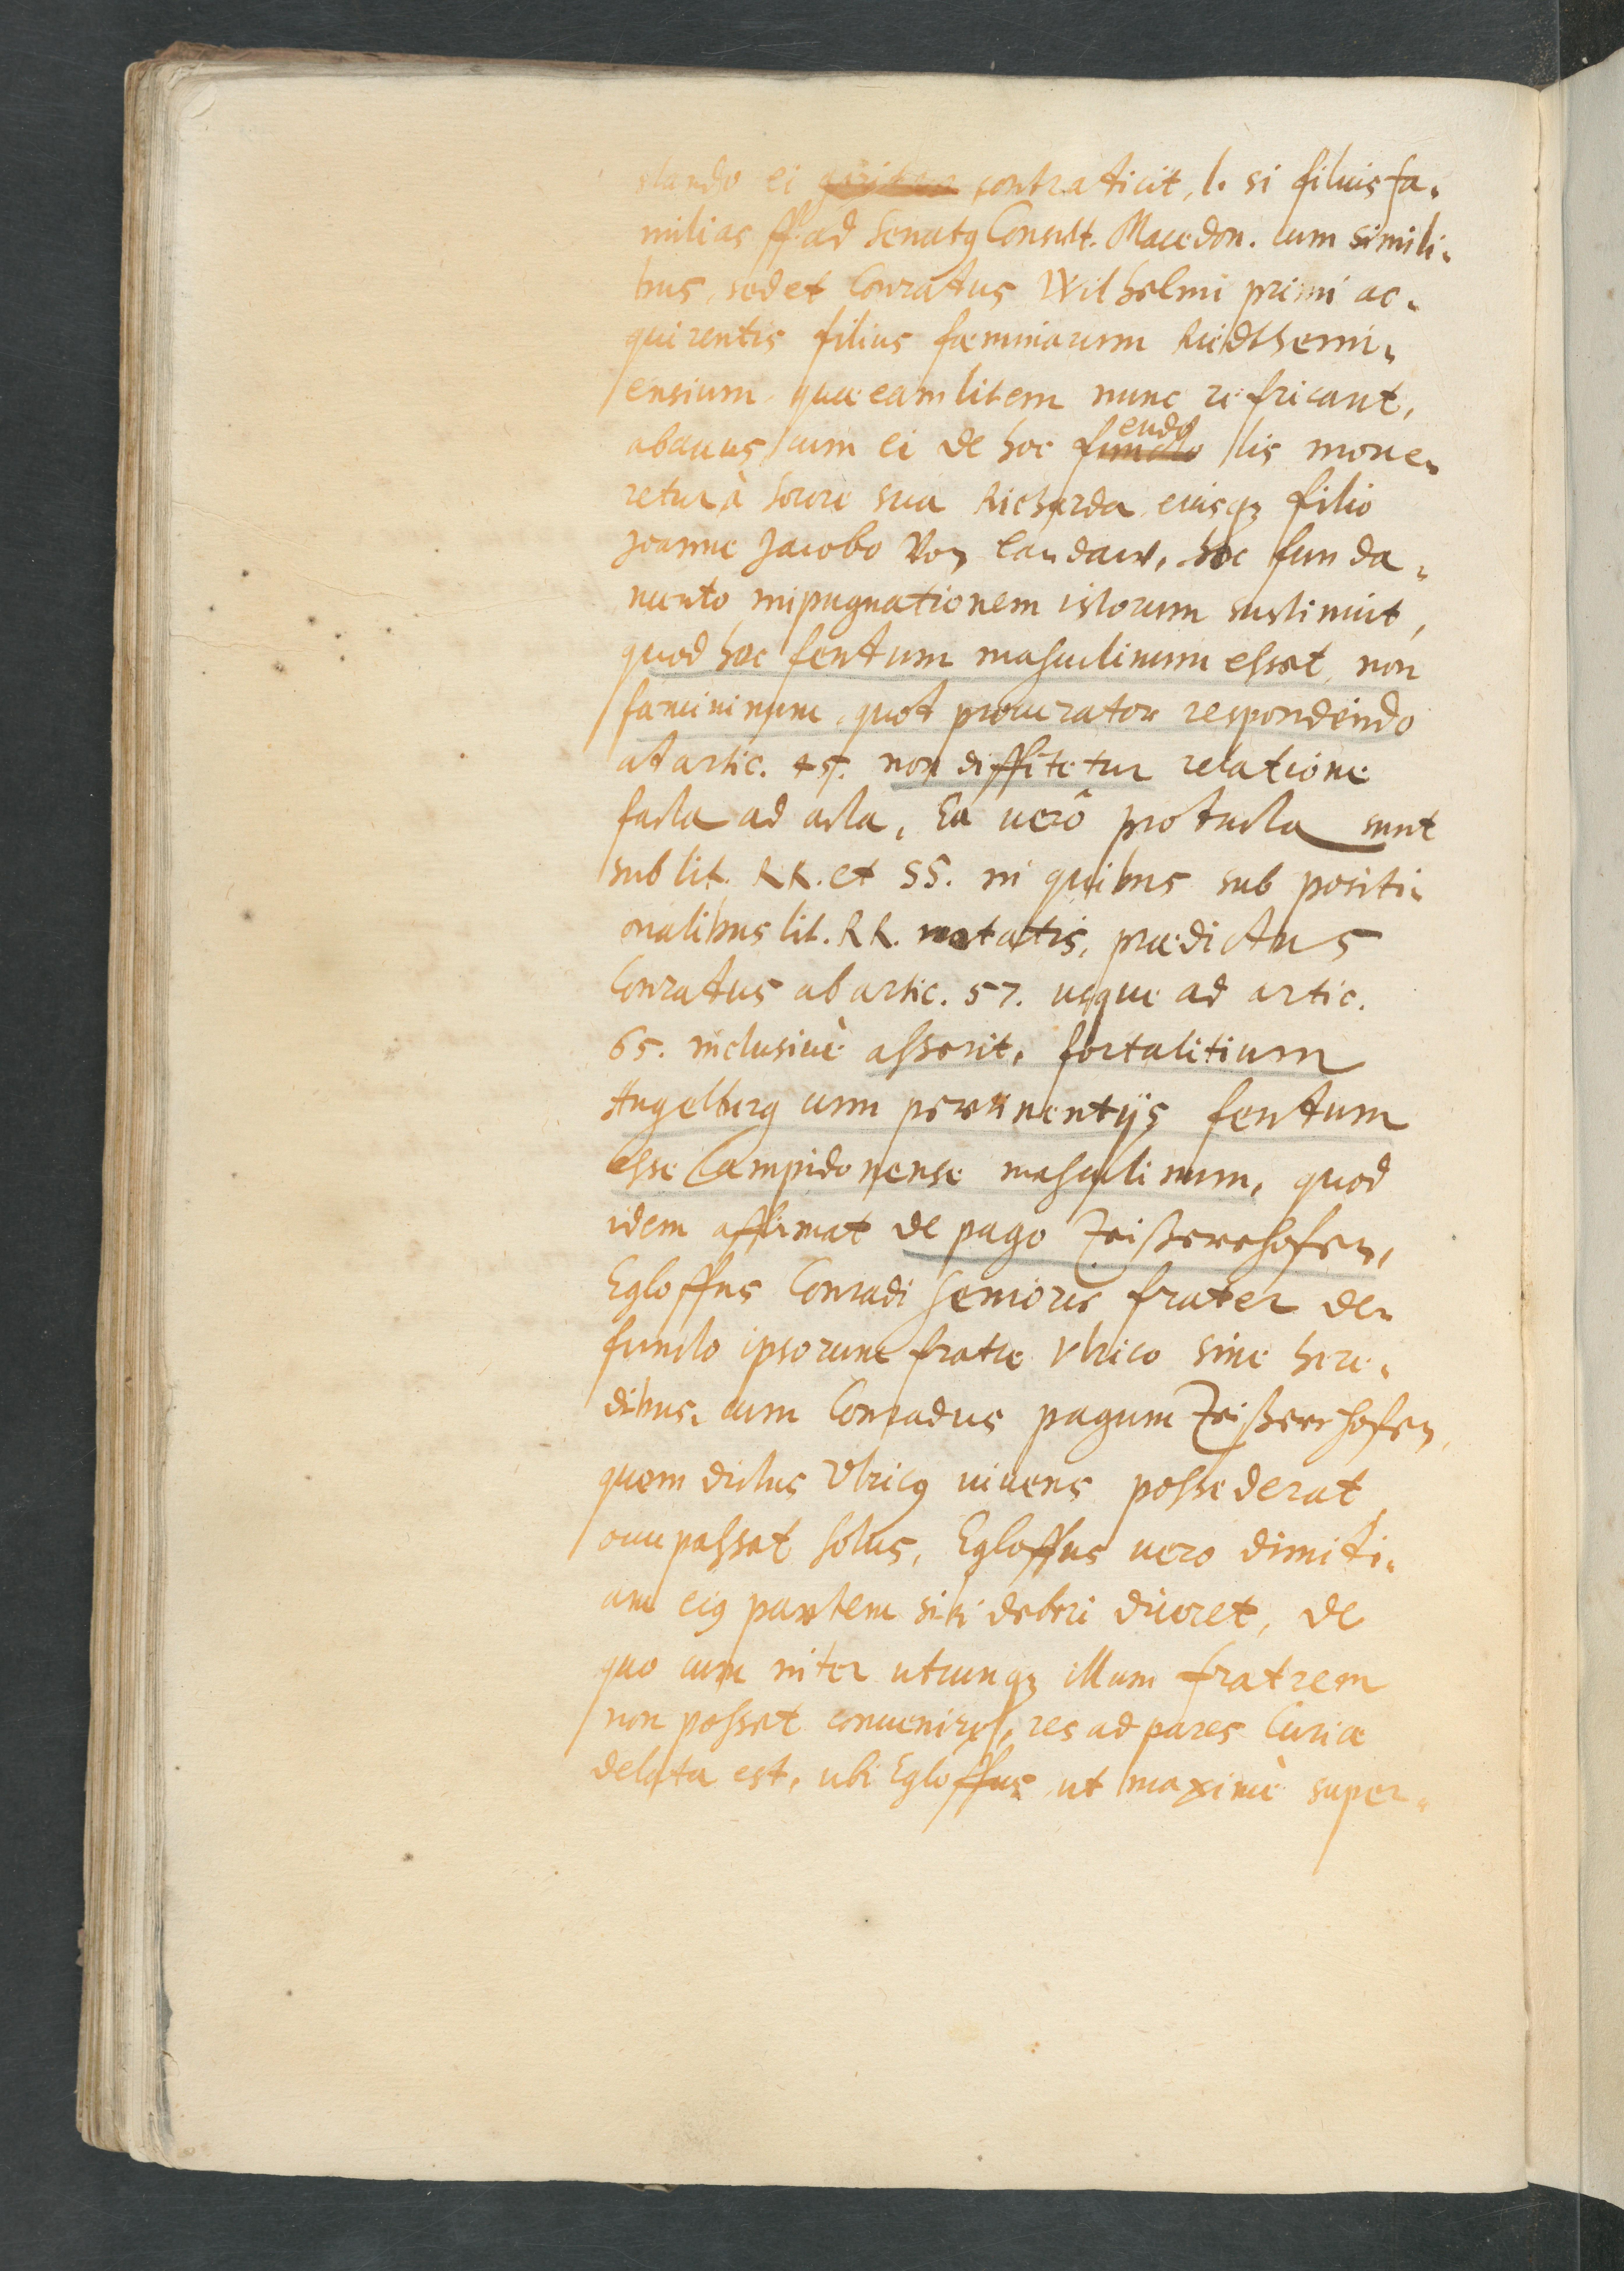 dando ei contraxit, l. si filius fa-
milias ff. ad Senatq Consult. Macedon. cum simili-
bus, sed et Conradus Wilhelmi primi ac-
quirentis filius fœminarum Riedthemi-
ensium quæ eam litem nunc refricant,
abauus, cum ei de hoc feudo lis moue-
retur à sorore sua Richarda eiusqz filio
Joanne Jacobo Von Landaw, hoc funda-
mento impugnationem istorum sustinuit,
quod hoc feudum masculinum esset, non
fœmininum, quod procurator respondendo
ad artic. 45. non diffitetur relatione
facta ad acta, Ea uerò producta sunt
sub lit. RR. et SS. in quibus sub positi-
onalibus lit. RR. notatis, prædictus
Conradus ab artic. 57. usque ad artic.
65. inclusiuè asserit, fortalitium
Angelberg cum pertinentijs feudum
esse Campidonense masculinum, quod
idem affirmat de pago Zeißertshofen,
Egloffus Conradi senioris frater de-
functo ipsorum fratre Vlrico sine here-
dibus, cum Conradus pagum Zeißertshofen,
quem dictus Vlricq uiuens possederat,
occupasset solus, Egloffus uero dimidi-
am eiq partem sibi deberi diceret, de
quo cum inter utrumqz illum fratrem
non posset conuenire, res ad pares Curiæ
delata est, ubi Egloffus ut maximè super-